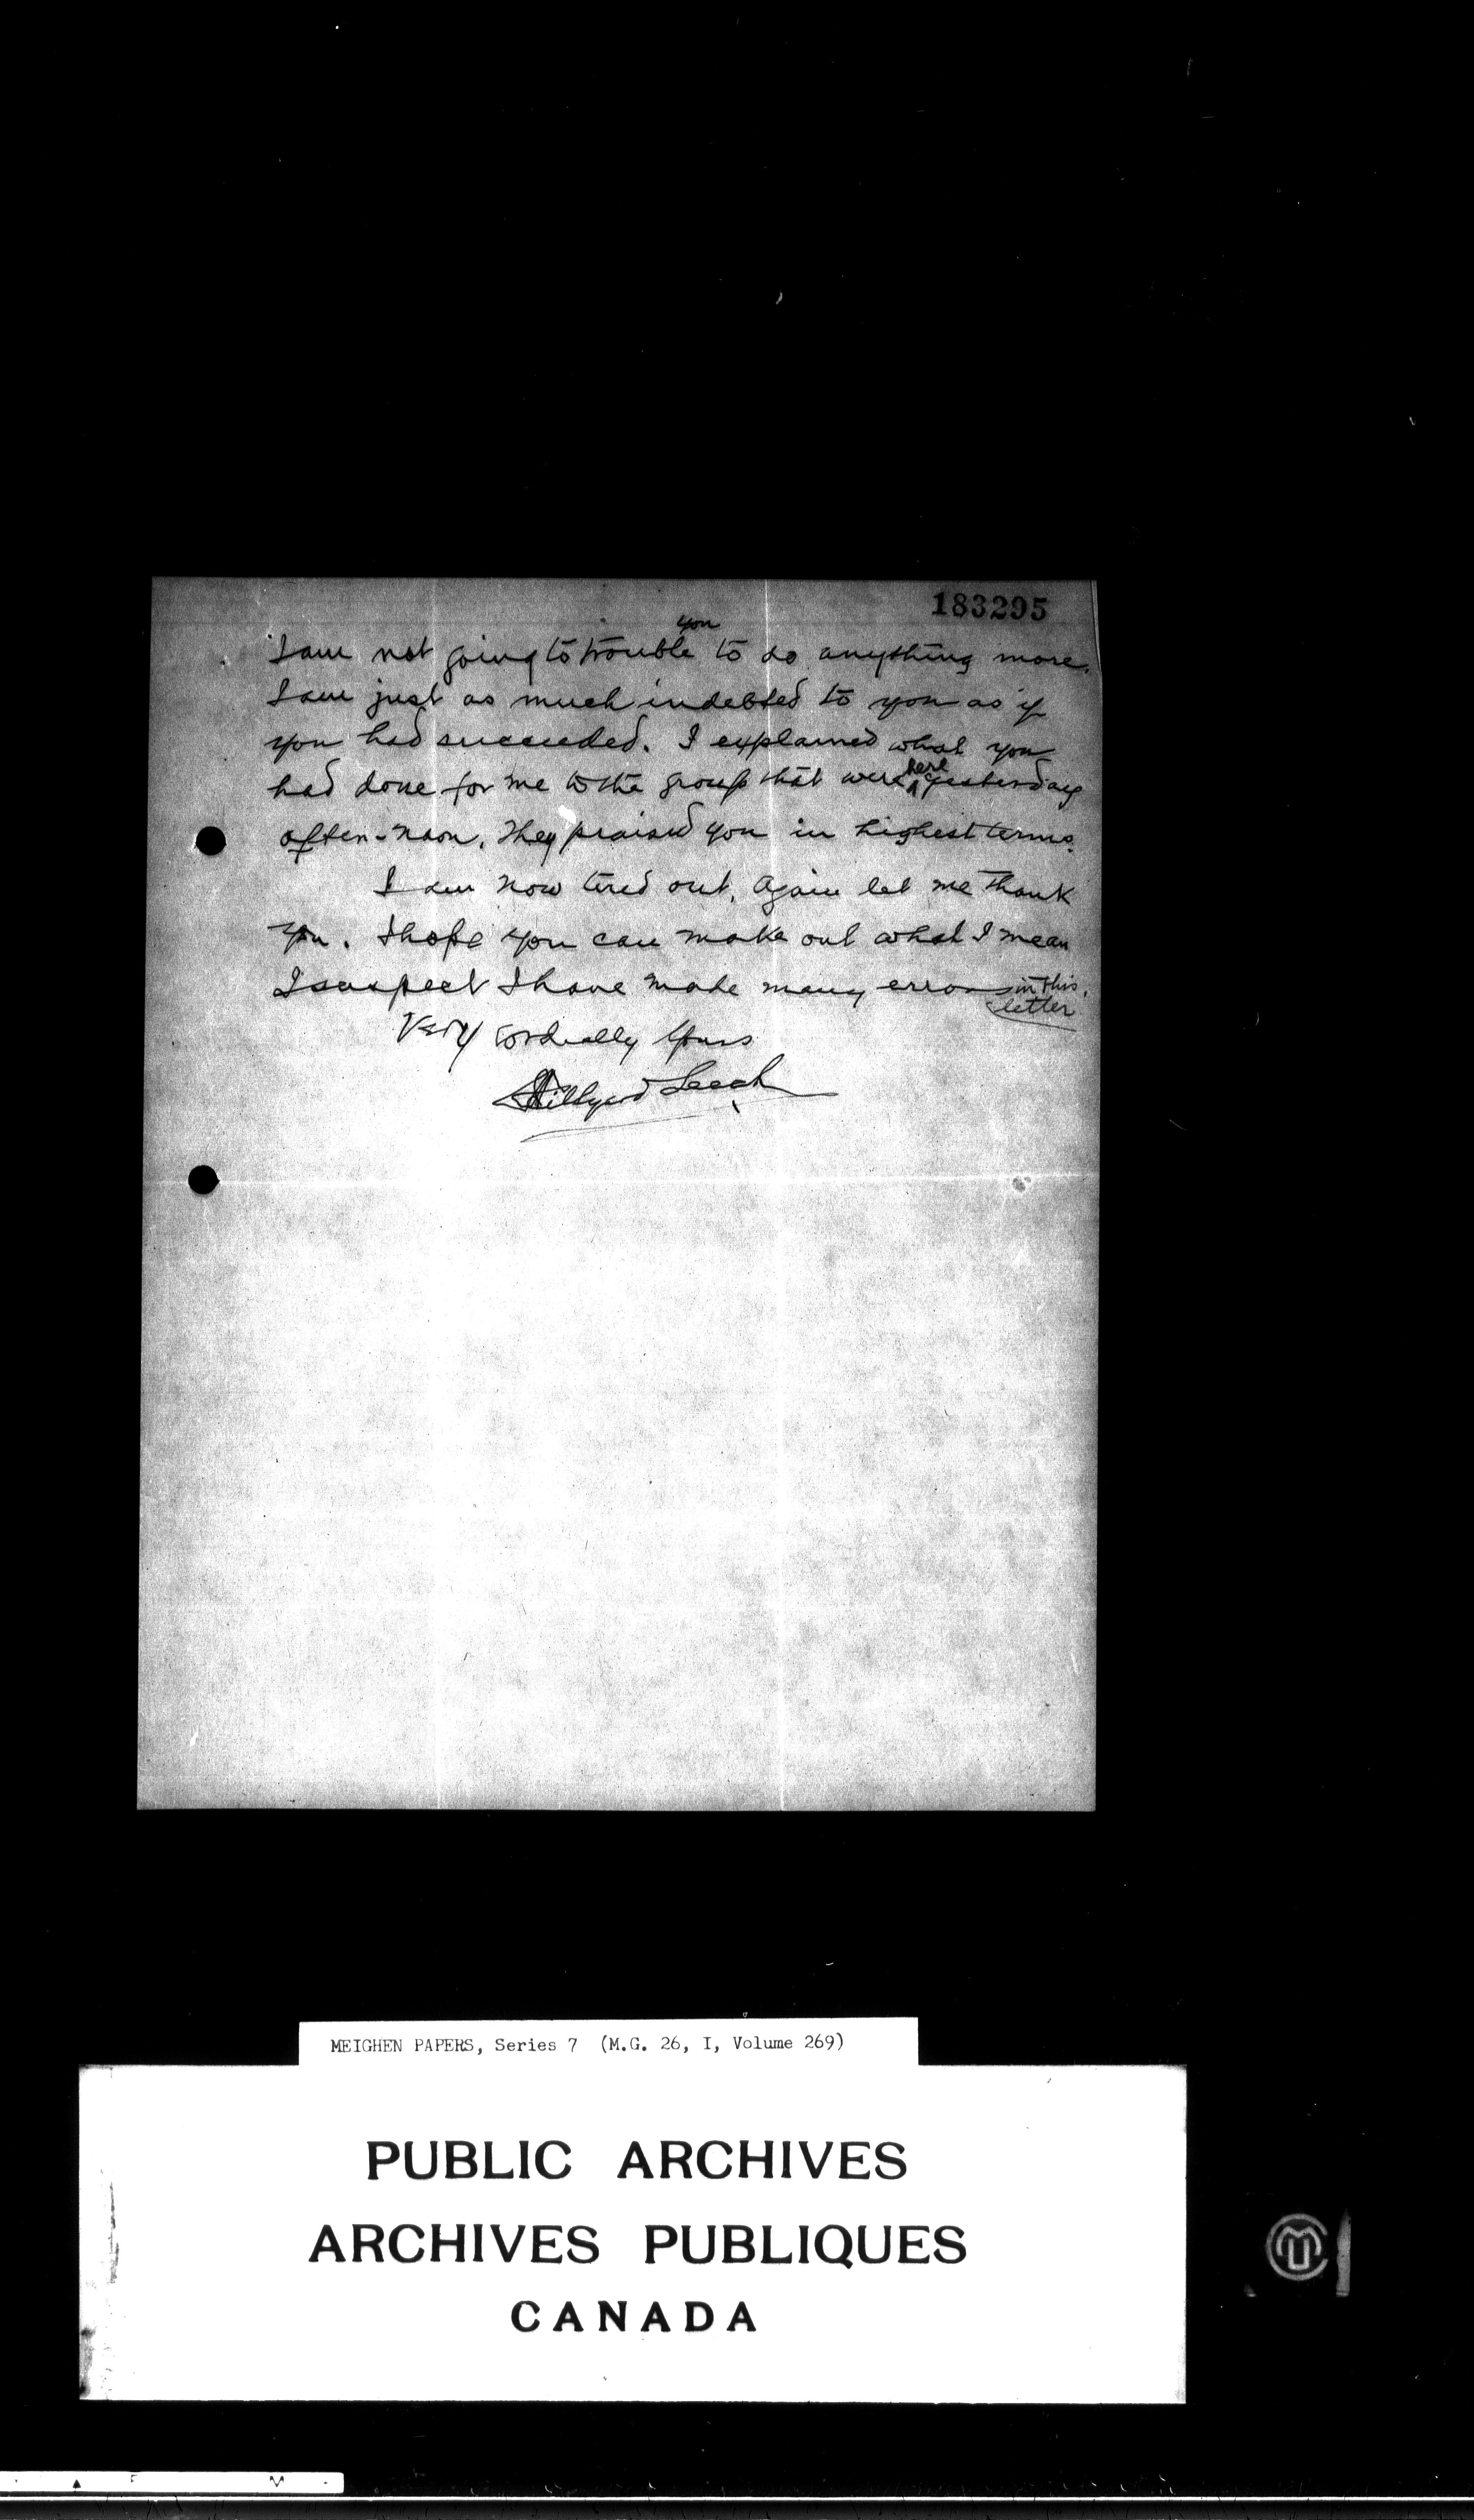 183295
I am not going to trouble you to do anything more.
I am just as much indebted to you as if
you had succeeded. I explained what you
had done for me to the group that were here yesterday
after-noon. They praised you in highest terms.
I am now tired out. Again let me thank
you. I hope you can make out what I mean
I suspect I have made many errors in this
letter
Very cordially yours
Hillyard Leech
MEIGHEN PAPERS, Series 7 (M.G. 26, I, Volume 269)
PUBLIC ARCHIVES
ARCHIVES PUBLIQUES
CANADA